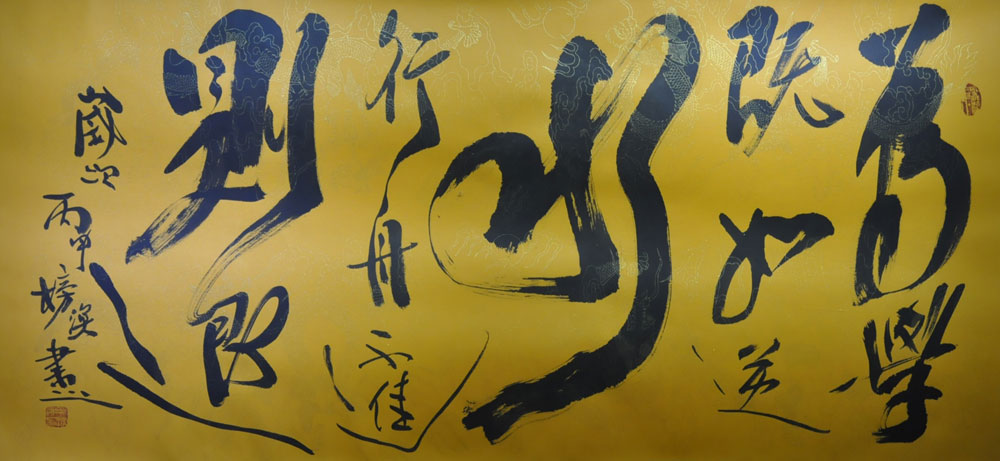 為學
既如逆
水
行舟不進
則退
歲次丙申
書